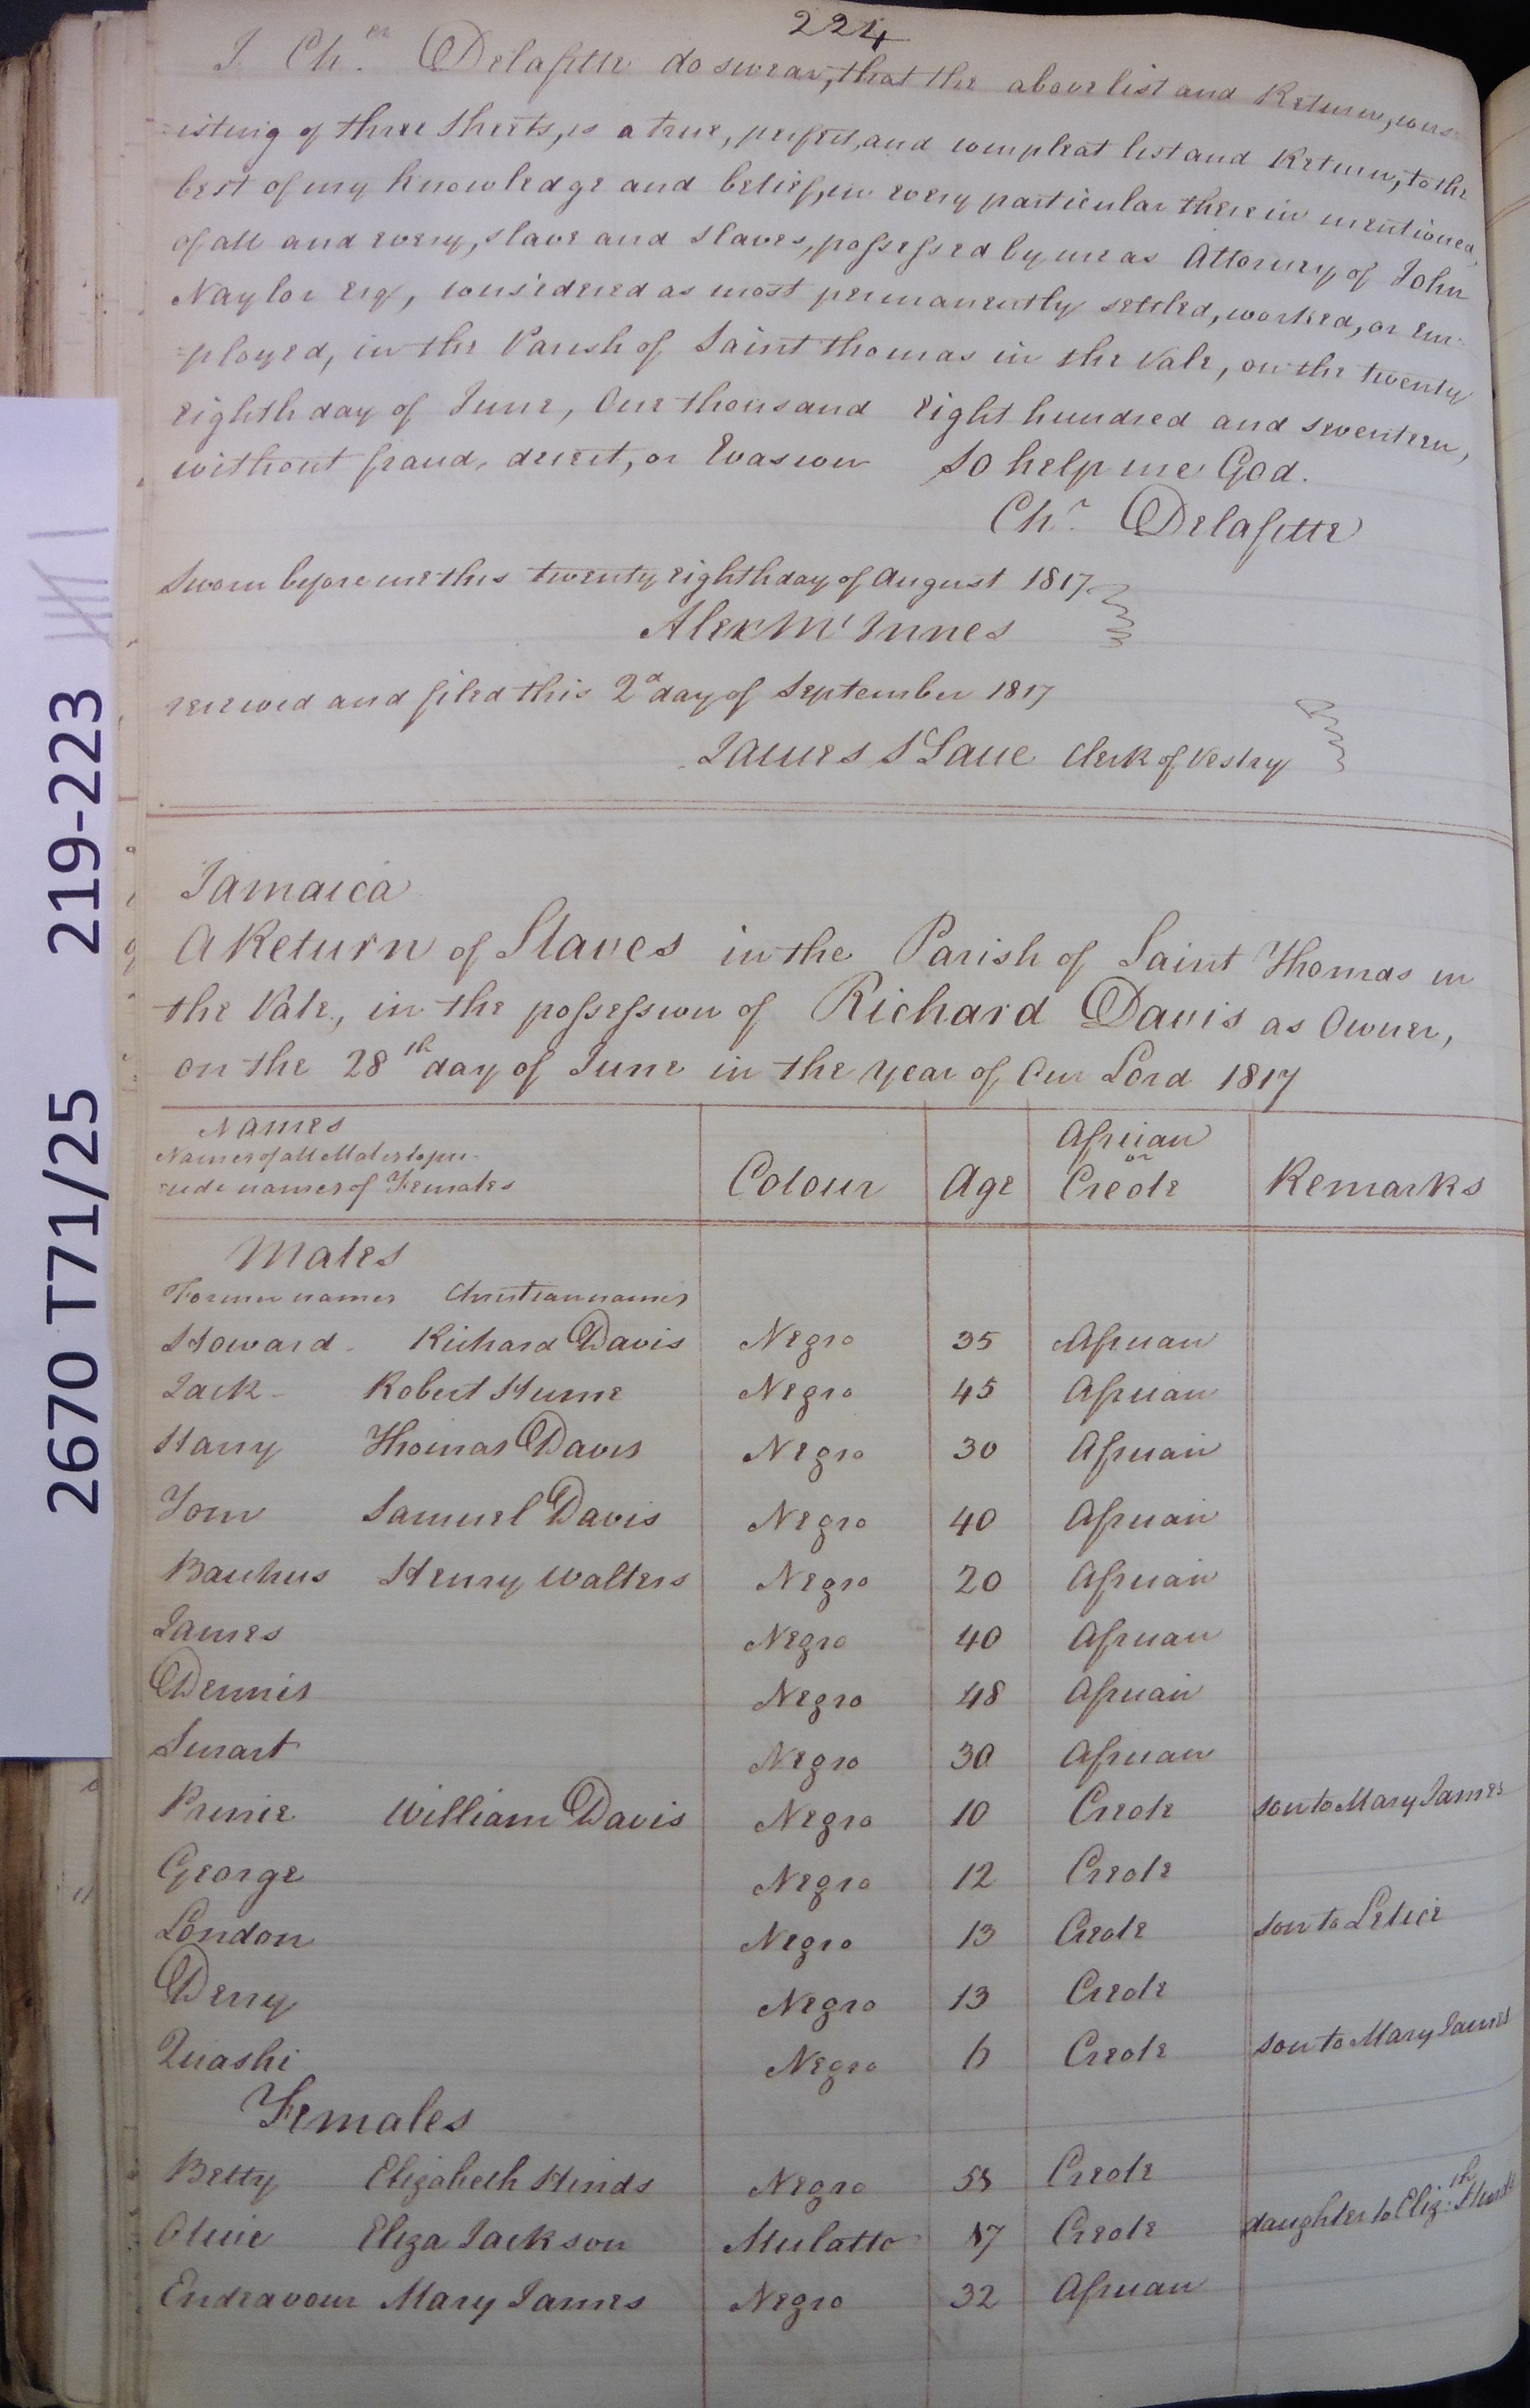 224
I Ch.er Delafitte do swear, that the above list and Return, cons-
=isting of three sheets, is a true, perfect, and compleat list and Return, to the
best of my knowledge and belief, in every particular therein mentioned,
of all and every, slave and slaves, possessed by me as Attorney of John
Naylor Esq, considered as most permanently settled, worked, or em-
=ployed, in the Parish of Saint Thomas in the Vale, on the twenty
eighth day of June, One thousand eight hundred and seventeen,
without fraud, deceit, or Evasion So help me God.
Chr. Delafitte
Sworn before me this twenty eighth day of August 1817
Alex Mc Innes
received and filed this 2d day of September 1817
James S Lane Clerk of Vestry
Jamaica
A Return of Slaves in the Parish of Saint Thomas in
the Vale, in the possession of Richard Davis as Owner,
on the 28th day of June in the year of Our Lord 1817
Names
Names of all Males to pre-
cede names of Females Colour Age African or Creole Remarks
Males
Former names Christian names
Howard Richard Davis Negro 35 African
Jack Robert Hume Negro 45 African
Harry Thomas Davis Negro 30 African
Tom Samuel Davis Negro 40 African
Bacchus Henry Walters Negro 20 African
James Negro 40 African
Dennis Negro 48 African
Smart Negro 30 African
Prince William Davis Negro 10 Creole son to Mary James
George Negro 12 Creole
London Negro 13 Creole son to Letice
Derry Negro 13 Creole
Quashi Negro 6 Creole son to Mary James
Females
Betty Elizabeth Hinds Negro Creole
Olivie Eliza Jackson Mulatto 17 Creole daughter to Eliz:th
Endeavour Mary James Negro 32 African
2670 T71/25 219-223